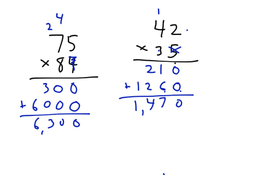 2 4
75
× 84
300
+6000
6,300
1
42
× 35
210
+1260
1,470